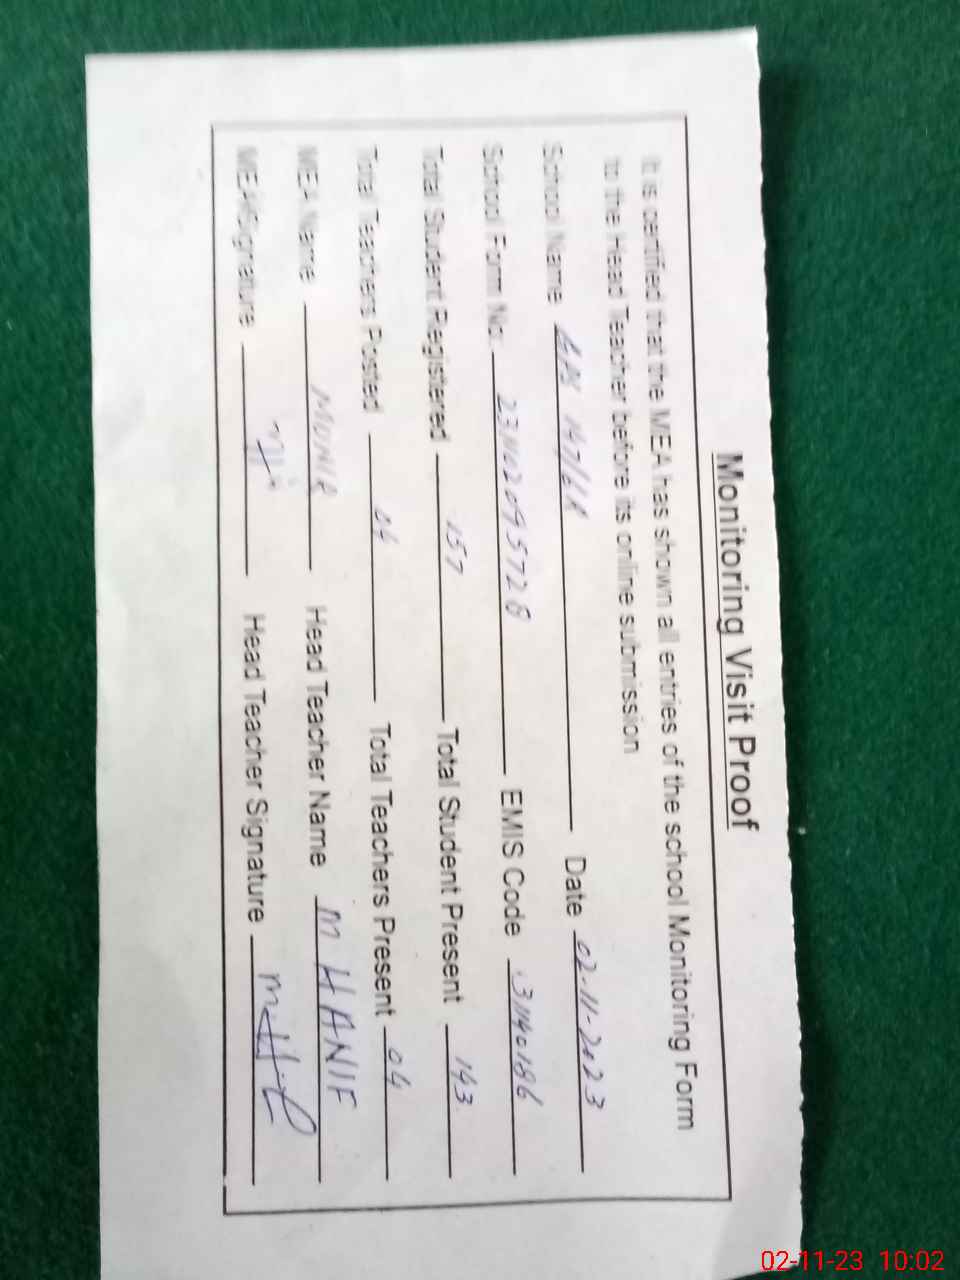 Monitoring Visit Proof
It is certified that the MEA has shown all entries of the school Monitoring Form
to the Head Teacher before its online submission
School Name GPS 147/6R Date 02-11-2023
School Form No. 231102095728 EMIS Code 31140186
Total Student Registered 157 Total Student Present 143
Total Teachers Posted 04 Total Teachers Present 04
MEA Name MUNIR Head Teacher Name M HANIF
MEA Signature Head Teacher Signature
02-11-23 10:02